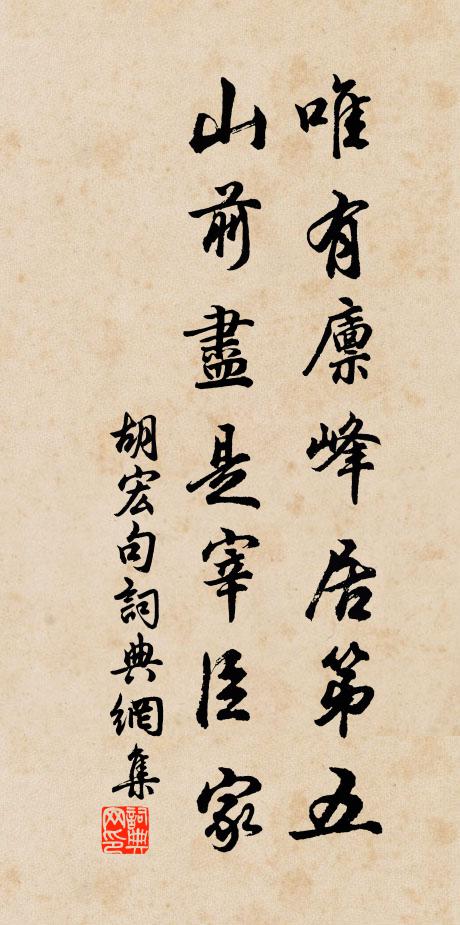 唯有廪峰居第五
山前盡是宰臣家
胡宏句詞典網集
詞典網印